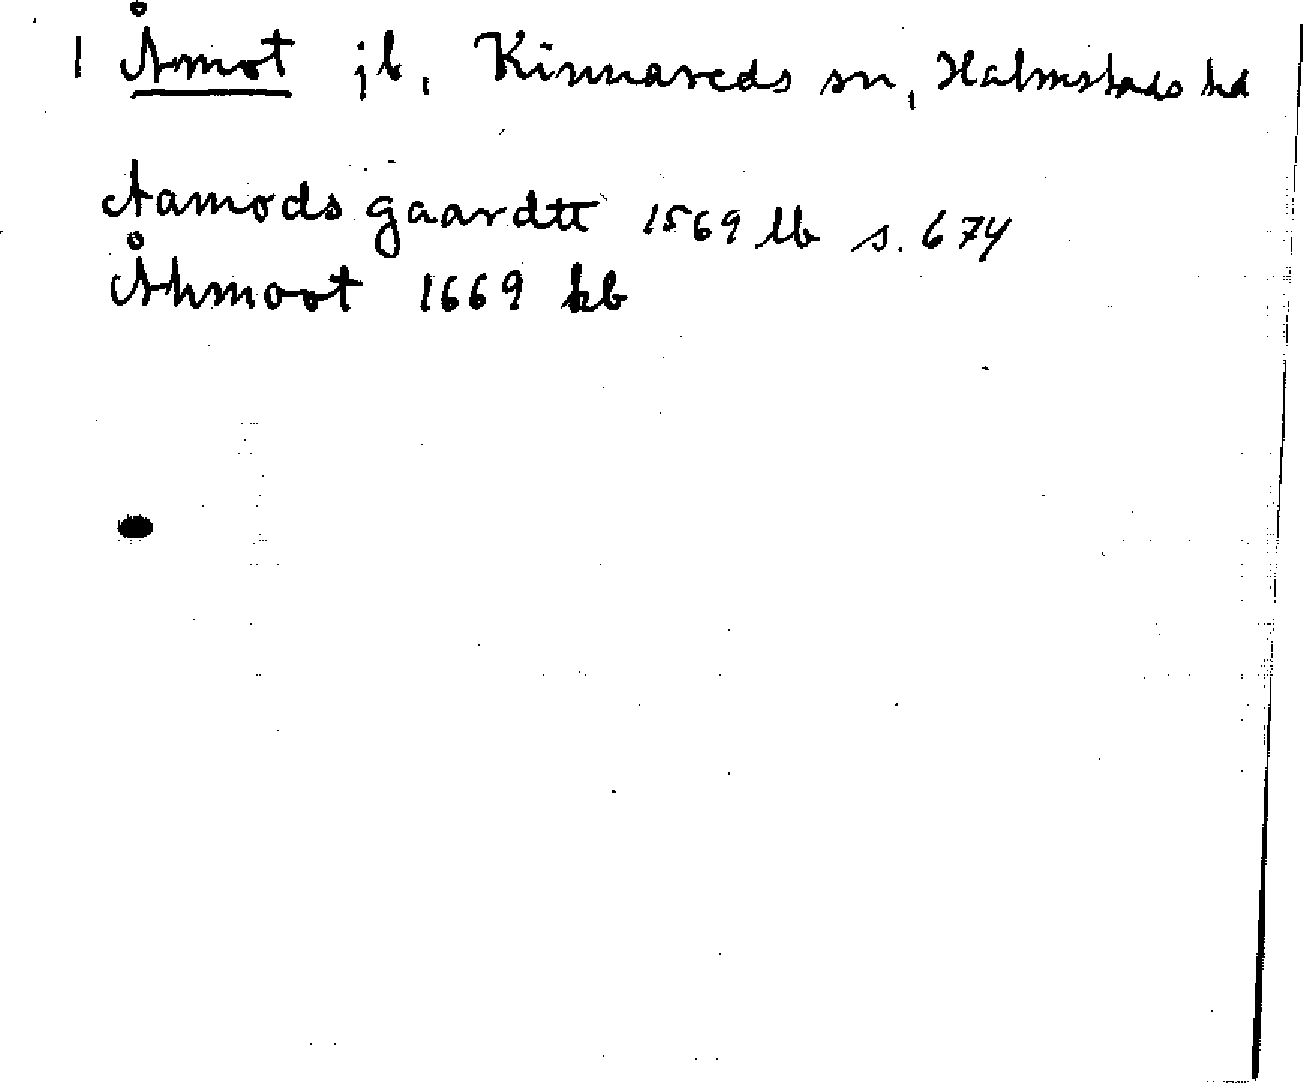 1 Åmot jb, Kinnareds sn, Halmstads hd
Aamods gaardtt 1569 lb s. 674
Åhmoot 1669 kb